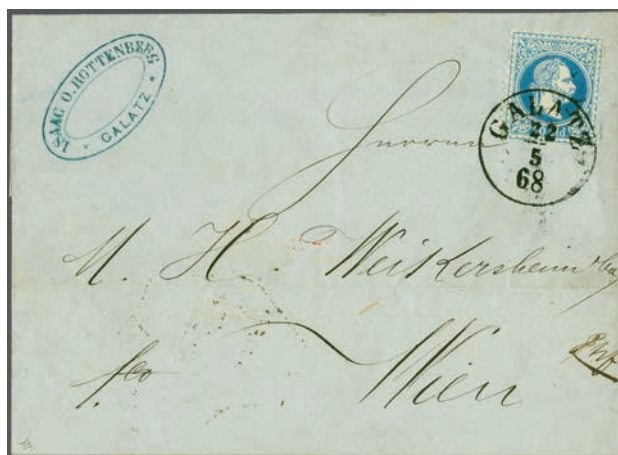 ISAAC O. ROTTENBERG
* GALATZ *
GALATZ
22
5
68
Herrn
M. H. Weikersheim & Co
fco Wien